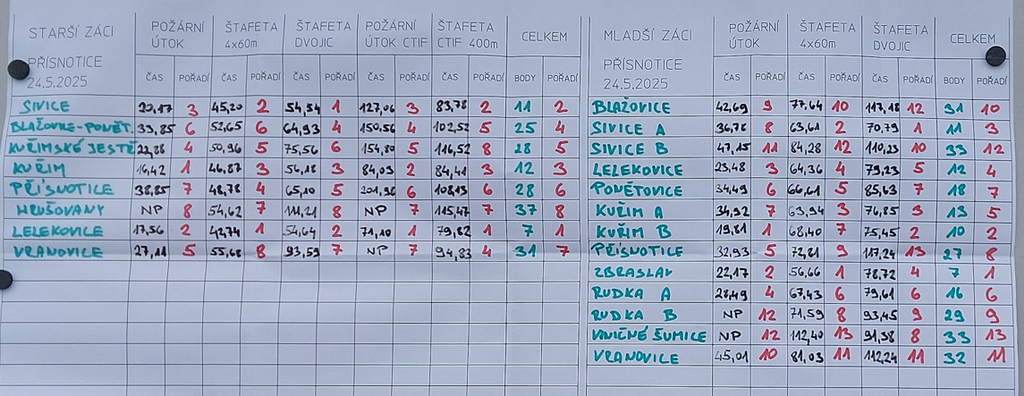 STARŠÍ ŽÁCI
PŘÍSNOTICE
24.5.2025
POŽÁRNÍ ÚTOK ŠTAFETA 4x60m ŠTAFETA DVOJIC POŽÁRNÍ ÚTOK CTIF ŠTAFETA CTIF 400m CELKEM
ČAS POŘADÍ ČAS POŘADÍ ČAS POŘADÍ ČAS POŘADÍ ČAS POŘADÍ BODY POŘADÍ
SIVICE 20,17 3 45,20 2 54,54 1 127,06 3 83,78 2 11 2
BLAŽOVICE-PONĚT. 33,85 6 52,65 6 64,93 4 150,56 4 102,52 5 25 4
KUŘIMSKÉ JESTĚ 22,88 4 50,96 5 75,56 6 154,80 5 116,52 8 28 5
KUŘIM 16,42 1 46,87 3 56,18 3 84,09 2 84,41 3 12 3
PŘÍSNOTICE 38,85 7 48,78 4 65,10 5 201,96 6 108,13 6 28 6
HRUŠOVANY NP 8 54,62 7 111,21 8 NP 7 115,47 7 37 8
LELEKOVICE 17,56 2 42,74 1 54,64 2 71,10 1 79,82 1 7 1
VRANOVICE 27,11 5 55,68 8 93,59 7 NP 7 94,83 4 31 7
MLADŠÍ ŽÁCI
PŘÍSNOTICE
24.5.2025
POŽÁRNÍ ÚTOK ŠTAFETA 4x60m ŠTAFETA DVOJIC CELKEM
ČAS POŘADÍ ČAS POŘADÍ ČAS POŘADÍ BODY POŘADÍ
BLAŽOVICE 42,69 9 77,64 10 117,18 12 31 10
SIVICE A 36,78 8 63,61 2 70,79 1 11 3
SIVICE B 47,15 11 84,28 12 110,23 10 33 12
LELEKOVICE 25,48 3 64,36 4 79,23 5 12 4
PONĚTOVICE 34,49 6 66,61 5 85,63 7 18 7
KUŘIM A 34,92 7 63,94 3 76,85 3 13 5
KUŘIM B 19,81 1 68,40 7 75,45 2 10 2
PŘÍSNOTICE 32,93 5 72,81 9 117,24 13 27 8
ZBRASLAV 22,17 2 56,66 1 78,72 4 7 1
RUDKA A 28,49 4 67,43 6 79,61 6 16 6
RUDKA B NP 12 71,59 8 93,45 9 29 9
VINIČNÉ ŠUMICE NP 12 112,40 13 91,58 8 33 13
VRANOVICE 45,01 10 81,03 11 112,24 11 32 11